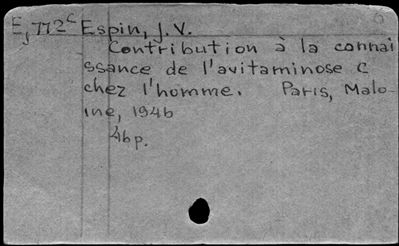 E,772c Espin, J.V.
Contribution à la connai
ssance de l'avitaminose C
chez l'homme. Paris, Malo-
ine, 1946
46p.